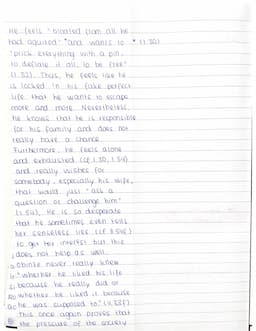 He feels "bloated from all he
had aquired" and wants to (l. 30)
"prick everything with a pin,
to deflate it all, to be free"
(l. 32). Thus, he feels like he
is locked in his fake perfect
life that he wants to escape
more and more. Nevertheless,
he knows that he is responsible
for his family and does not
really have a chance.
Furthermore, he feels alone
and exhausted (cf. l. 30, l. 54)
and really wishes for
somebody, especially his wife,
that would just "ask a
question or challenge him"
(l. 54). He is so desperate
that he sometimes even tells
her senseless lies
to get her interest but this
does not help as well.
never really knew
"whether he liked his life
because he really did or
whether he liked it because
he was supposed to"
This once again proves that
the pressure of the society